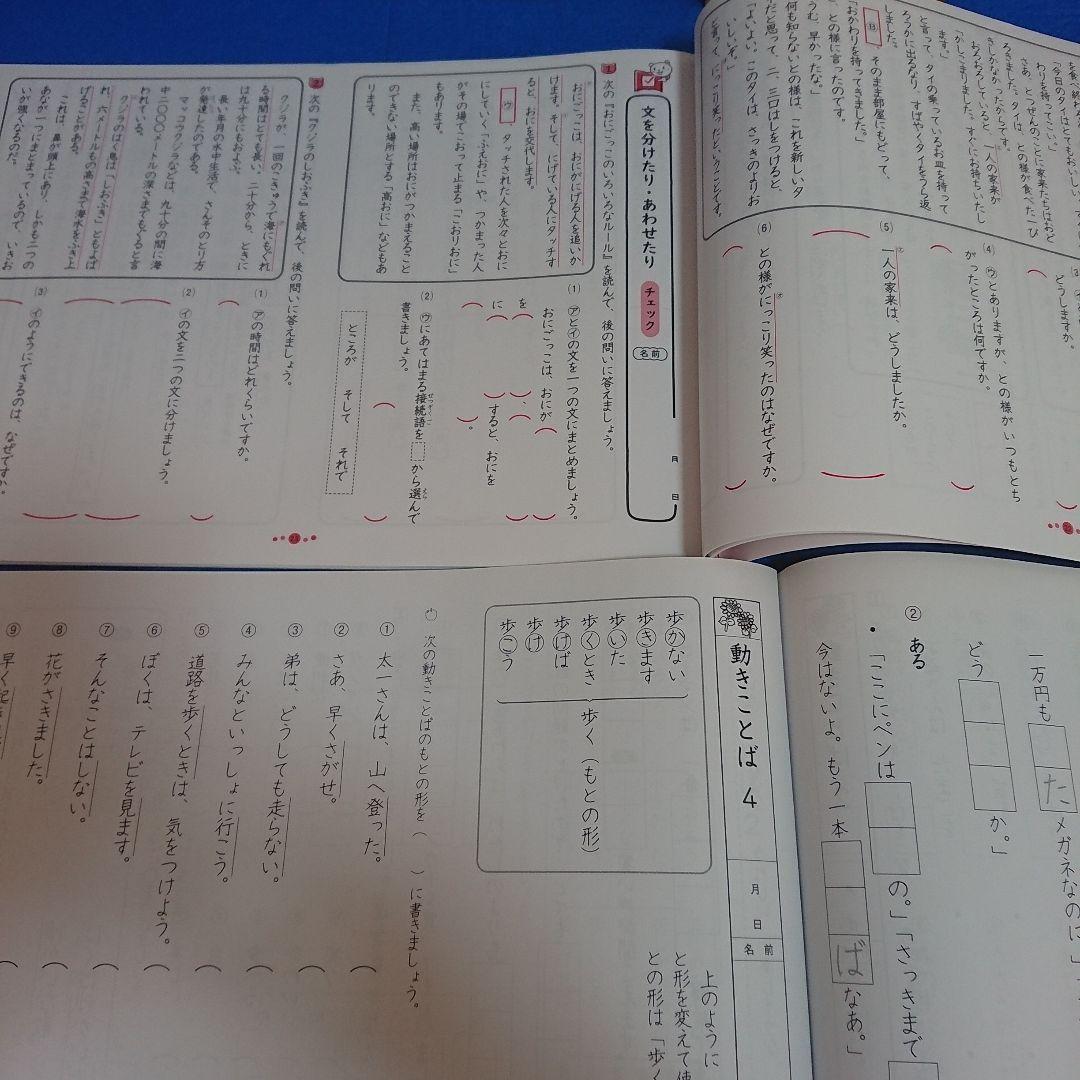 を食べ終わ
「今日のタイはとてもおいしい。
わりを持ってこい。」
さあ、とつぜんのことに家来たちはおど
ろきました。タイは、との様が食べた一ぴ
きしかなかったからです。
おろおろしていると、一人の家来が
「かしこまりました。すぐにお持ちいたし
ます。」
と言って、タイの乗っているお皿を持って
ろうかに出るなり、すばやくタイをうら返
しました。
そのまま部屋にもどって、
「おかわりを持ってきました。」
と、との様に言ったのです。
「うむ、早かったな。」
何も知らないとの様は、これを新しいタ
イだと思って、二、三口はしをつけると、
「よいよい。このタイは、さっきのよりお
いしいぞ。」
と言って、にっこり笑ったということです。
どうしますか。
④ ㋒とありますが、との様がいつもとち
がったところは何ですか。
⑤ 一人の家来は、どうしましたか。
⑥ との様がにっこり笑ったのはなぜですか。
文を分けたり・あわせたり チェック
名前
月 日
1 次の『おにごっこのいろいろなルール』を読んで、後の問いに答えましょう。
おにごっこは、おにがにげる人を追いか
けます。そして、にげている人にタッチす
ると、おにを交代します。
ウ タッチされた人を次々とおに
にしていく「ふえおに」や、つかまった人
がその場でこおって止まる「こおりおに」
もあります。
また、高い場所はおにがつかまえること
のできない場所とする「高おに」などもあ
ります。
(1) ㋐と㋑の文を一つの文にまとめましょう。
おにごっこは、おにが
を
に
すると、おにを
。
(2) ㋒にあてはまる接続語を から選んで
書きましょう。
ところが そして それで
2 次の『クジラのしおふき』を読んで、後の問いに答えましょう。
クジラが、一回のこきゅうで海にもぐれ
る時間はとても長い。二十分から、ときに
は九十分にもおよぶ。
長い年月の水中生活で、さんそのとり方
が発達したのである。
マッコウクジラなどは、九十分の間に海
中二〇〇〇メートルの深さまでもぐると言
われている。
クジラのはく息は「しおふき」ともよば
れ、六メートルもの高さまで海水をふき上
げることがある。
これは、鼻が頭の上にあり、しかも二つの
あなが一つにまとまっているので、いきお
いが強くなるのだ。
(1) ㋐の時間はどれくらいですか。
(2) ㋑の文を二つの文に分けましょう。
(3) ㋑のようにできるのは、なぜですか。
一万円も
た
メガネなのに」
どう
か。」
② ある
・「ここにペンは
の。」「さっきまで
今はないよ。もう一本
ば
なあ。」
動きことば 4
月 日
名前
上のように
と形を変えて使
との形は「歩く
歩かない
歩きます
歩いた
歩くとき
歩けば
歩け
歩こう
歩く(もとの形)
次の動きことばのもとの形を( )に書きましょう。
① 太一さんは、山へ登った。
② さあ、早くさがせ。
③ 弟は、どうしても走らない。
④ みんなといっしょに行こう。
⑤ 道路を歩くときは、気をつけよう。
⑥ ぼくは、テレビを見ます。
⑦ そんなことはしない。
⑧ 花がさきました。
⑨ 早く起き